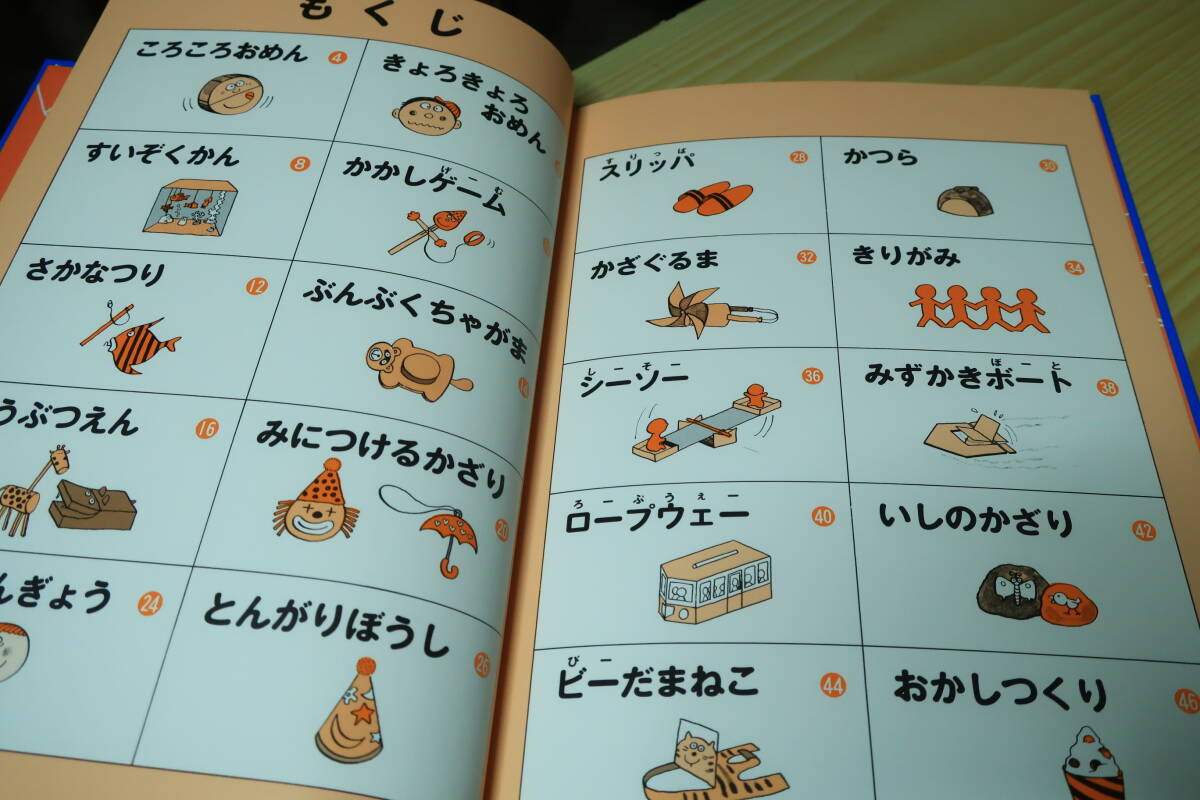 もくじ
ころころおめん 4
きょろきょろ
おめん
すいぞくかん 8
かかしゲーム
げ こ む
さかなつり 12
ぶんぶくちゃがま
うぶつえん 16
みにつけるかざり 20
んぎょう 24
とんがりぼうし 26
すりっぱ
スリッパ 28
かつら 30
かざぐるま 32
きりがみ 34
しーそー
シーソー 36
ぼーと
みずかきボート 38
ろーぷうぇー
ロープウェー 40
いしのかざり 42
びー
ビーだまねこ 44
おかしつくり 46